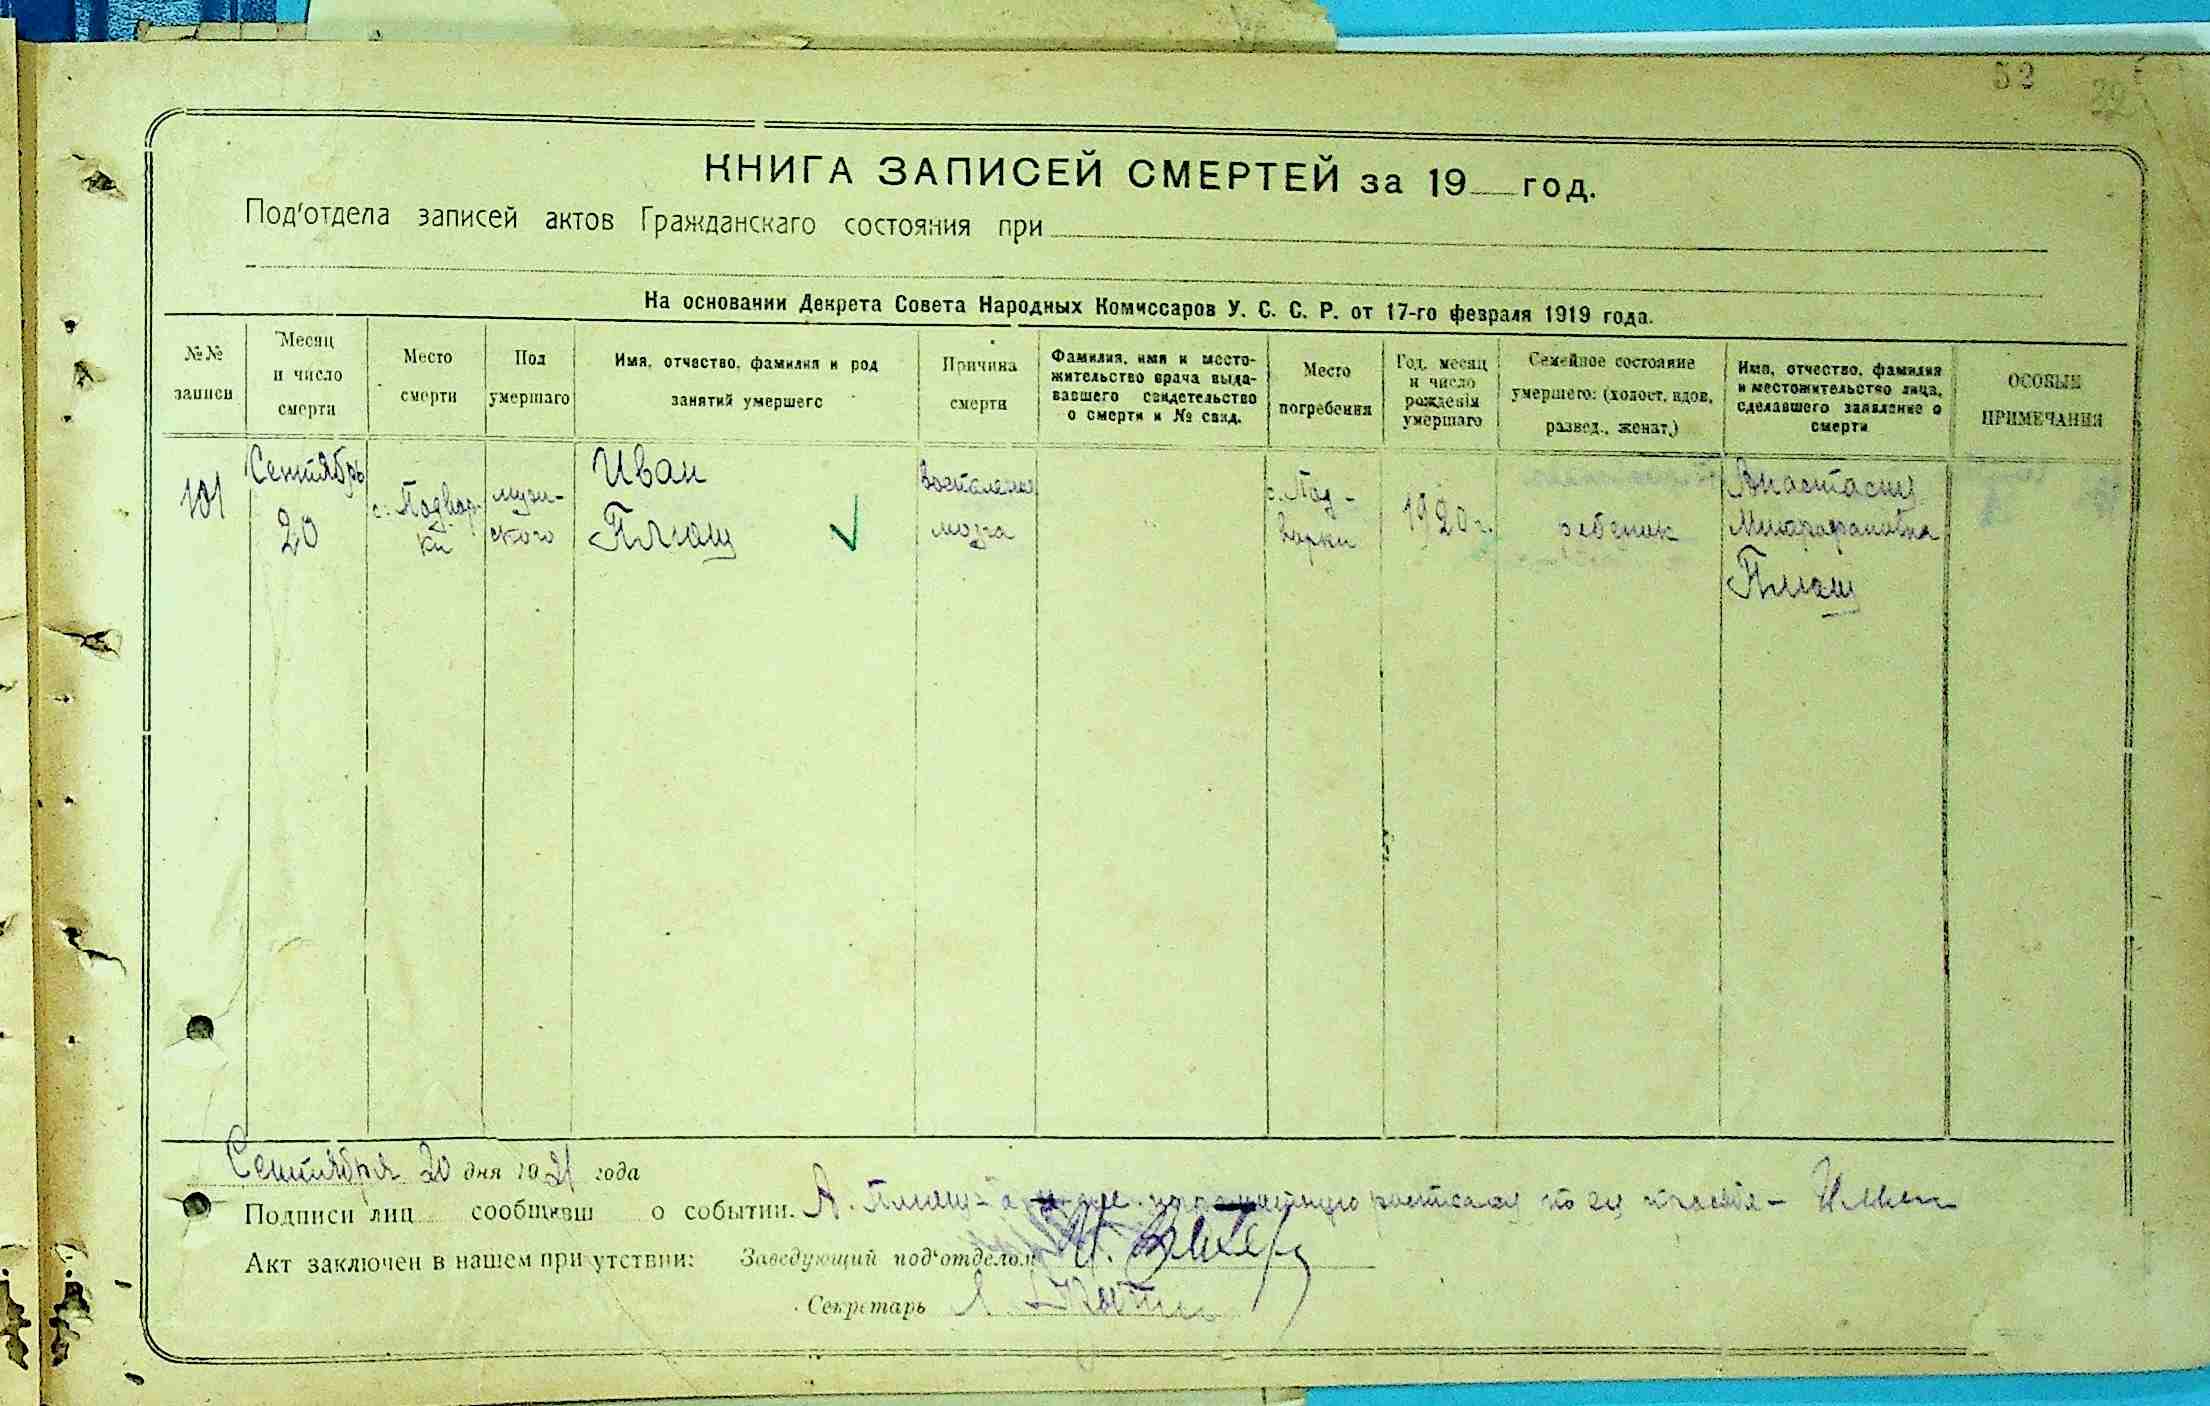 52
22
КНИГА ЗАПИСЕЙ СМЕРТЕЙ за 19 год.
Под'отдела записей актов Гражданскаго состояния при
На основании Декрета Совета Народных Комиссаров У. С. С. Р. от 17-го февраля 1919 года.
№№
записи
Месяц
и число
смерти
Место
смерти
Пол
умершаго
Имя, отчество, фамилия и род
занятий умершего
Причина
смерти
Фамилия, имя и место-
жительство врача выда-
вавшего свидетельство
о смерти и № свид.
Место
погребения
Год, месяц
и число
рождения
умершаго
Семейное состояние
умершего: (холост, вдов,
развед., женат.)
Имя, отчество, фамилия
и местожительство лица,
сделавшего заявление о
смерти
ОСОБЫЕ
ПРИМЕЧАНИЯ
101
Сентябрь
20
с. Подвор-
ки
мужи-
ского
Иван
Плющ
воспаление
мозга
с. Под-
ворки
1920 г.
ребенок
Анастасия
Митрофановна
Плющ
Сентября 20 дня 1921 года
Подписи лиц сообщивш о событии. А. Плющ а
Акт заключен в нашем присутствии: Заведующий под'отделом
Секретарь